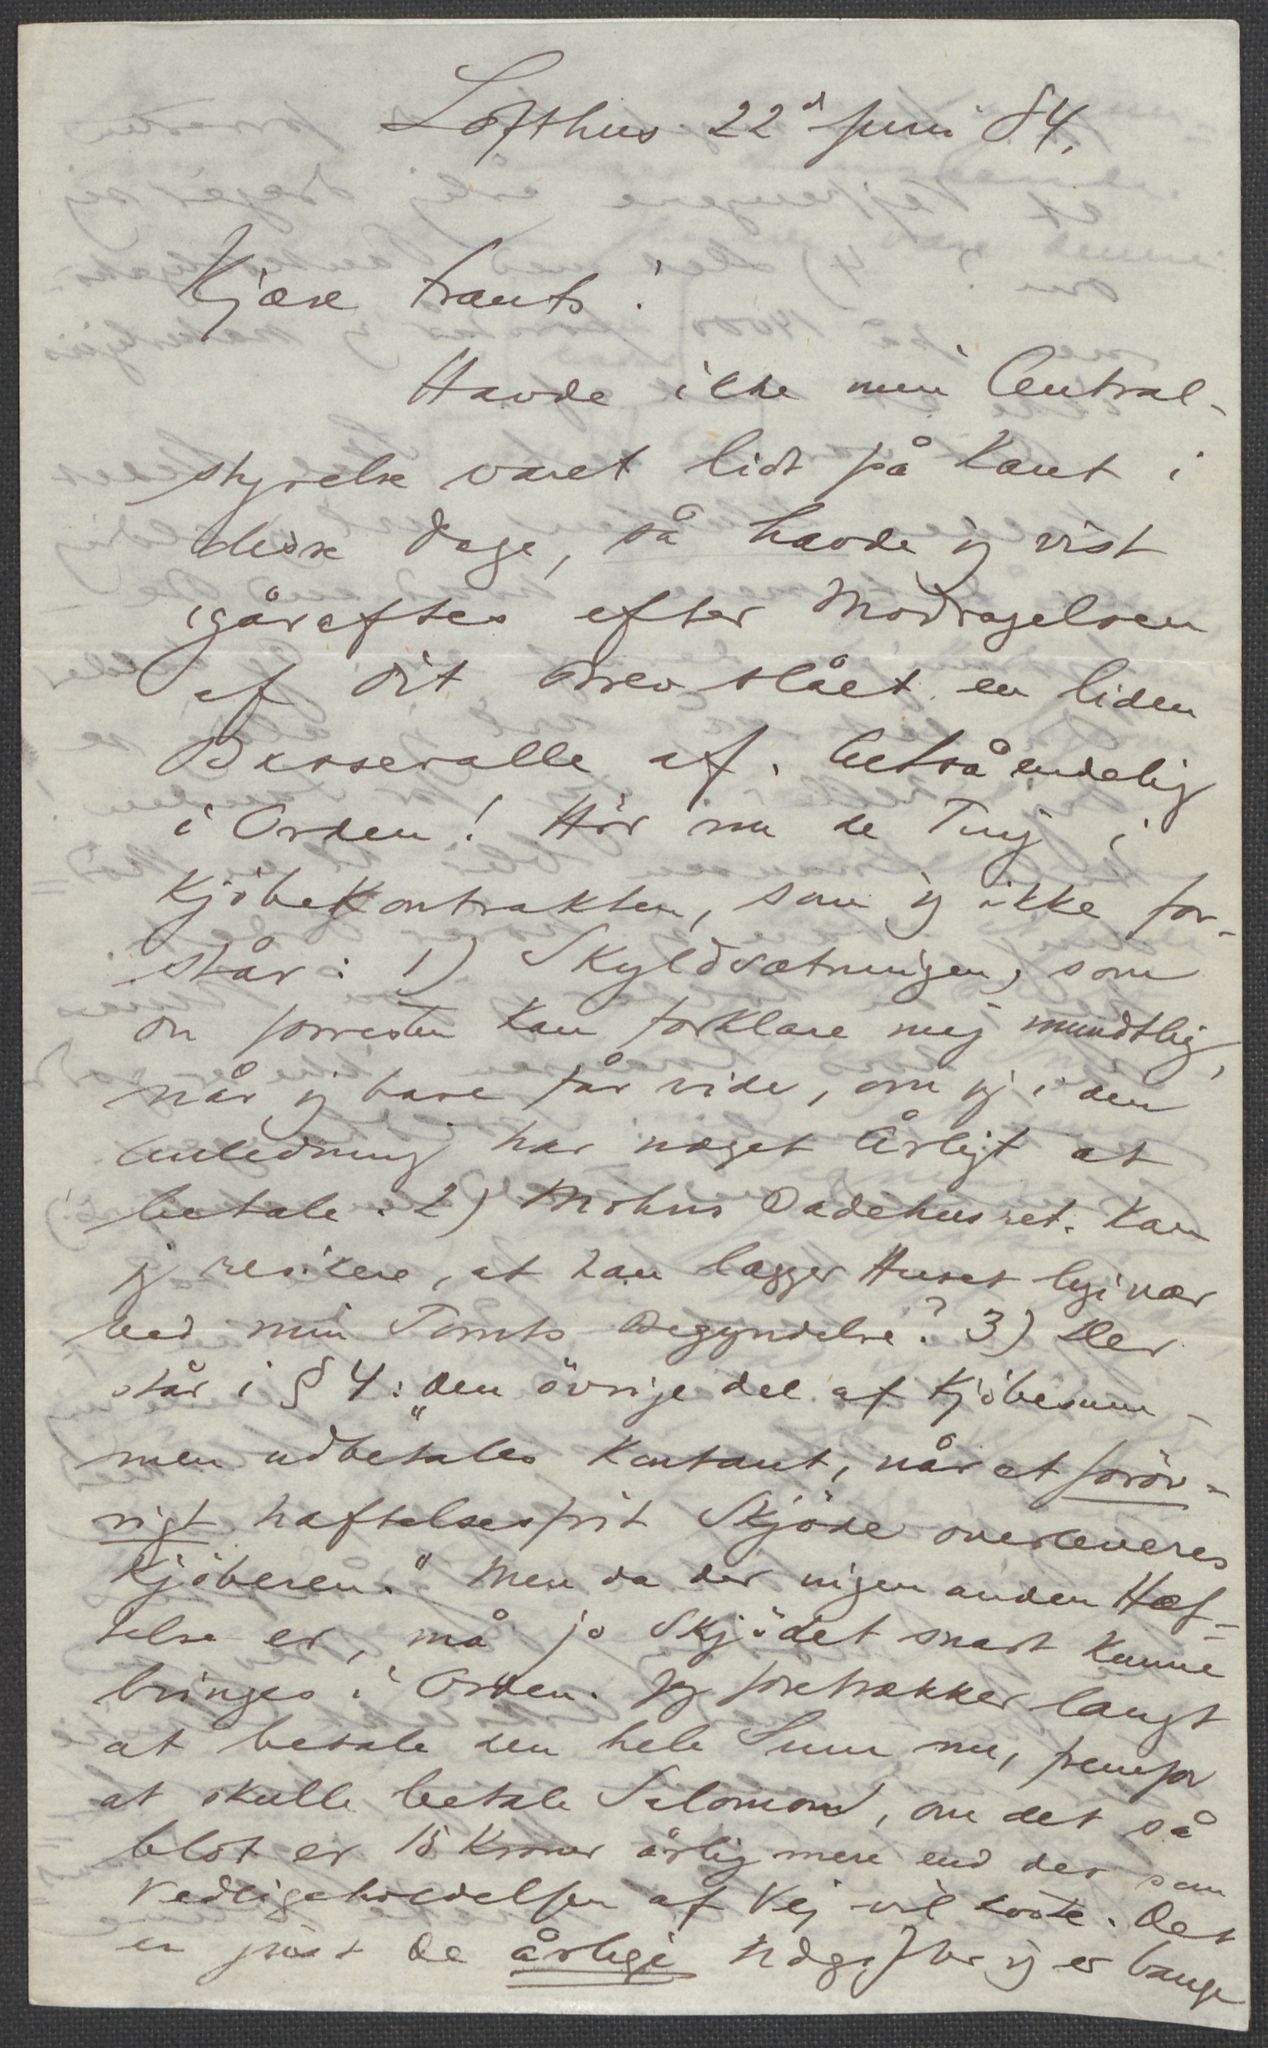 Lofthus 22d Juni 84.
Kjære Frants!
Havde ikke min Central-
styrelse været lidt på Kant i
disse Dage, så havde jeg vist
igåraftes efter Modtagelsen
af dit Brev slået en liden
Basseralle af. Altså endelig
i Orden! Hör nu de Ting i
Kjöbekontrakten, som jeg ikke for-
står: 1) Skyldsætningen, som
du forresten kan forklare mig mundtlig,
når jeg bare får vide, om jeg i den
Anledning har noget Årligt at
betale. 2) Mohns Badehusret. Kan
jeg risikere, at han lægger Huset lige nær
ved min Tomts Begyndelse? 3) Der
står i § 4: "den övrige del af Kjöbesum-
men udbetales kontant, når et foröv-
rigt hæftelsesfrit Skjöde overleveres
Kjöberen." Men da der ingen anden Hæf-
telse er, må jo Skjödet snart kunne
bringes i Orden. Jeg foretrækker langt
at betale den hele Sum nu, fremfor
at skulle betale Salomond, om det så
blot er 15 Kroner årlig mere end der som
Vedligeholdelsen af Vej vil koste. Det
er just de årlige Udgifter jeg er bange